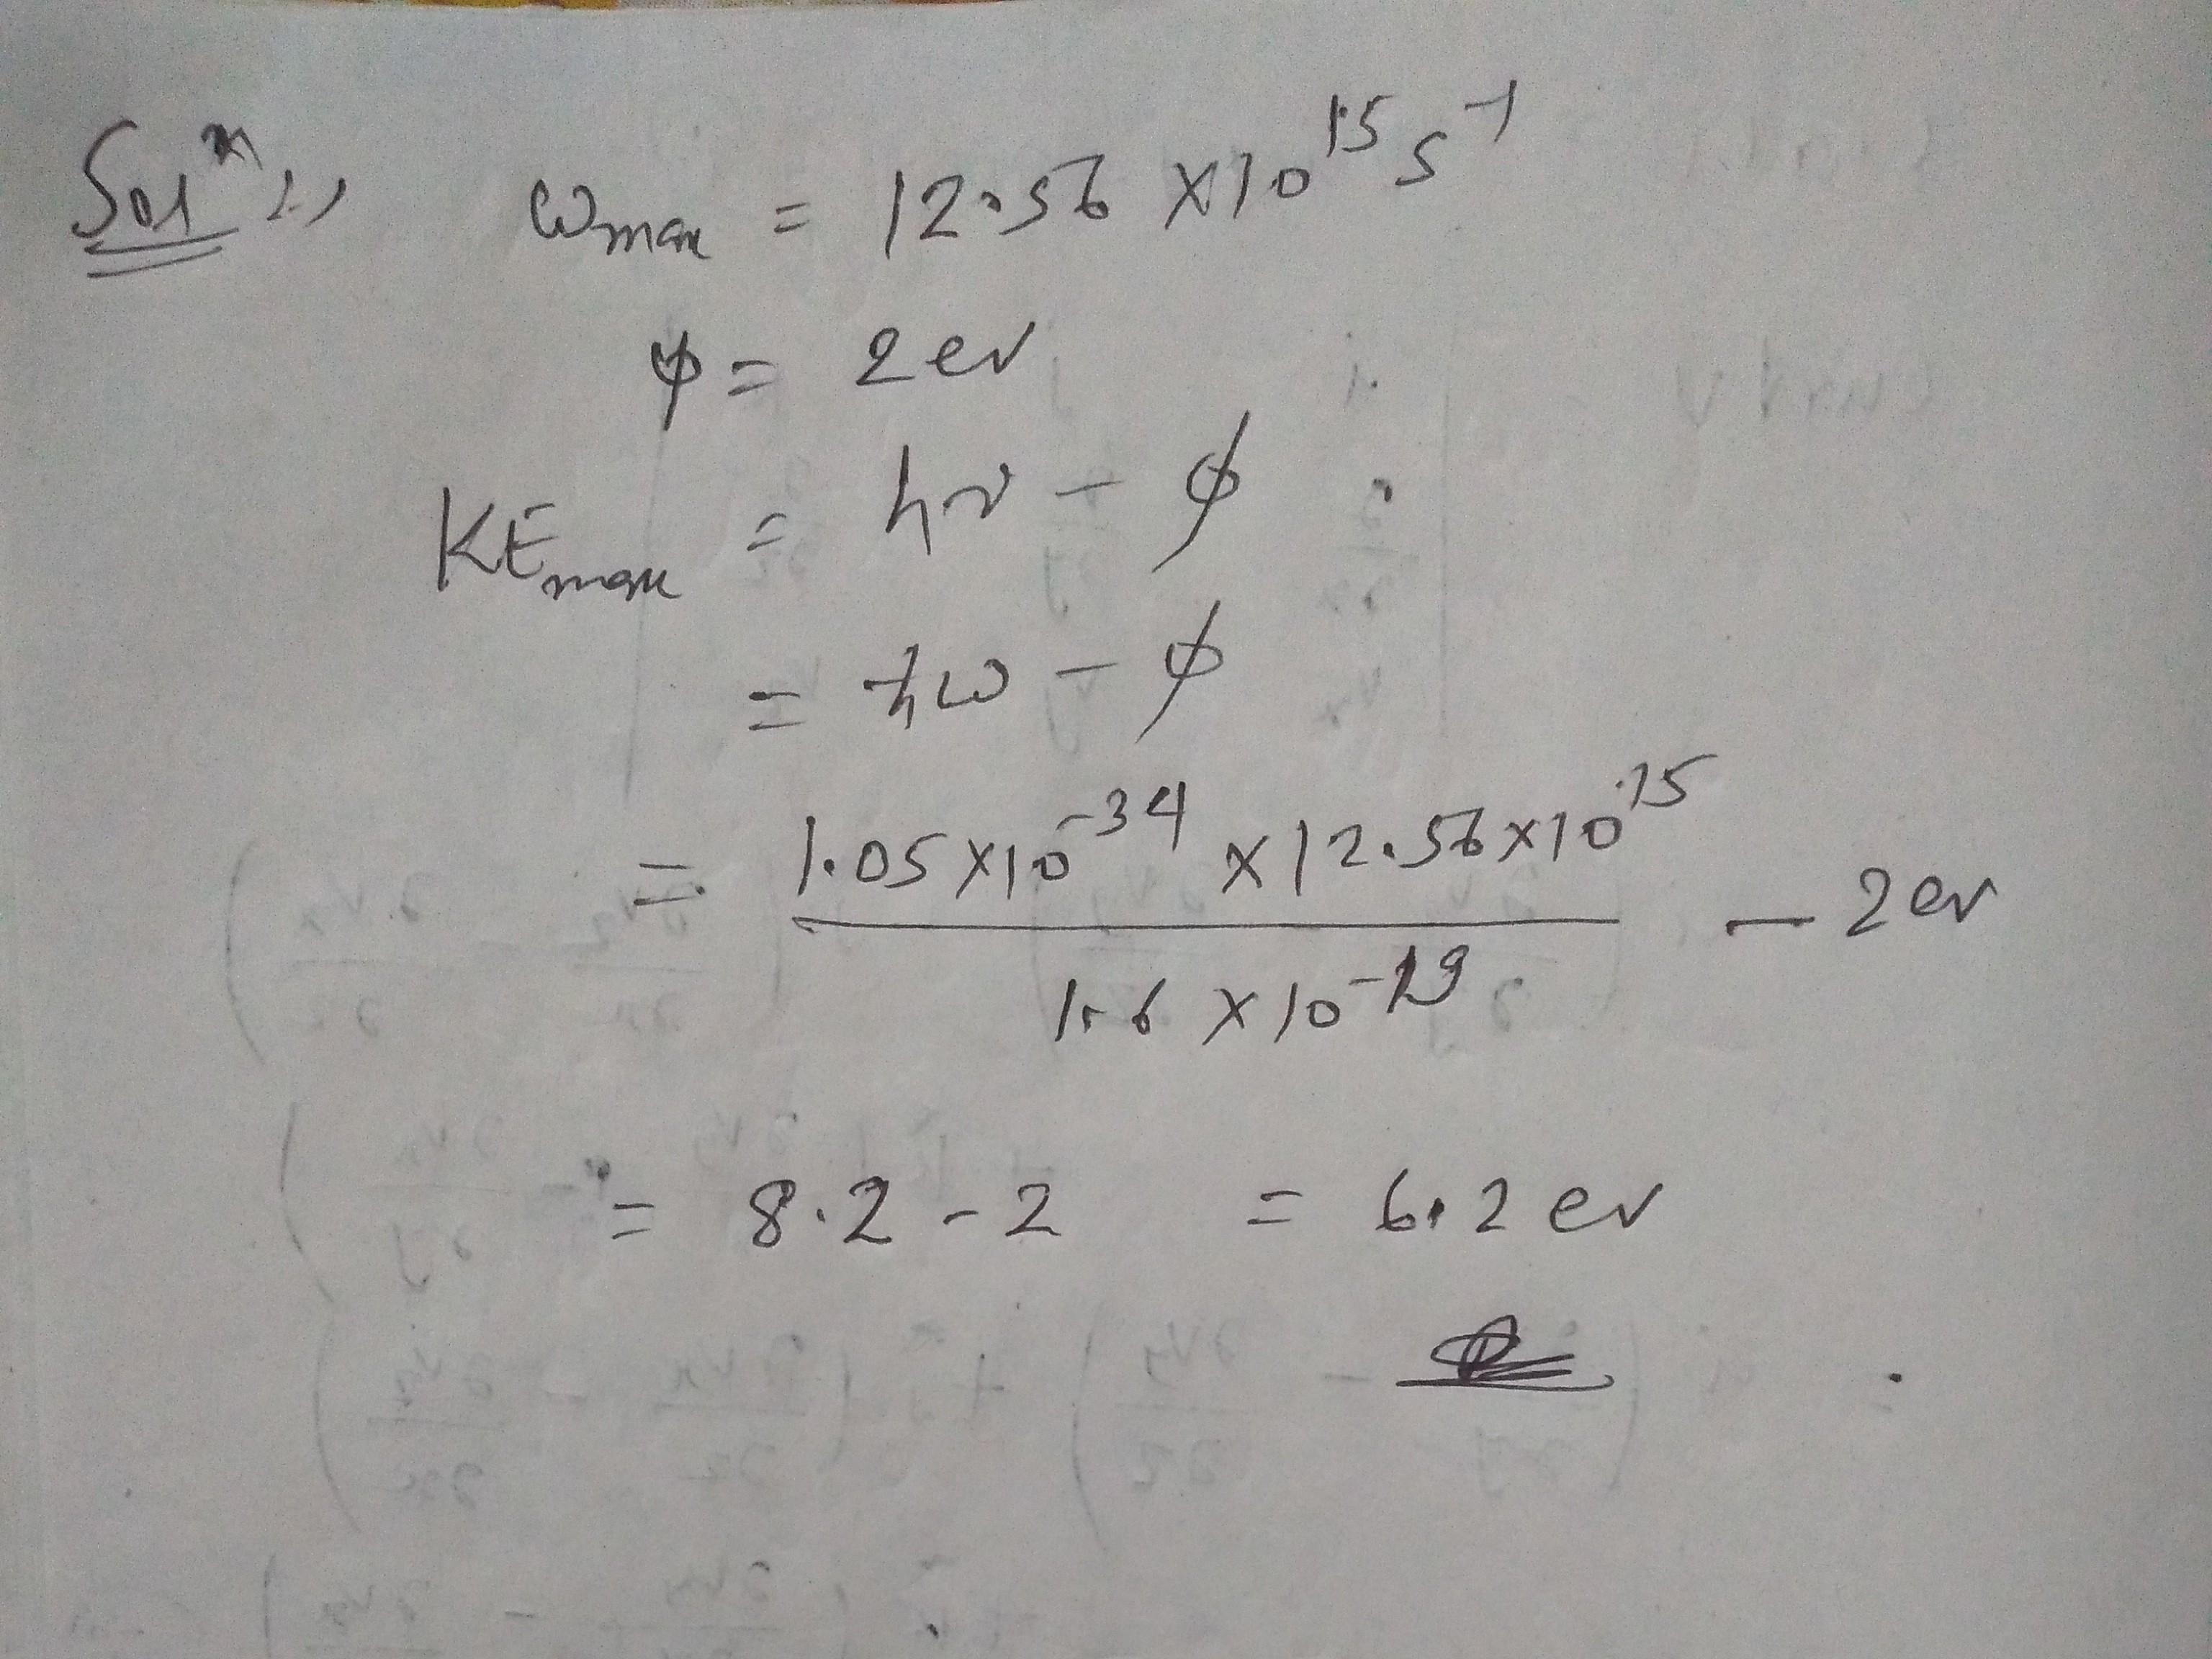 Solⁿ :)  ω_max = 12.56 × 10¹⁵ s⁻¹
φ = 2 ev
KE_max = hν − φ
= ħω − φ
= (1.05 × 10⁻³⁴ × 12.56 × 10¹⁵) / (1.6 × 10⁻¹⁹) − 2 ev
= 8.2 − 2 = 6.2 ev